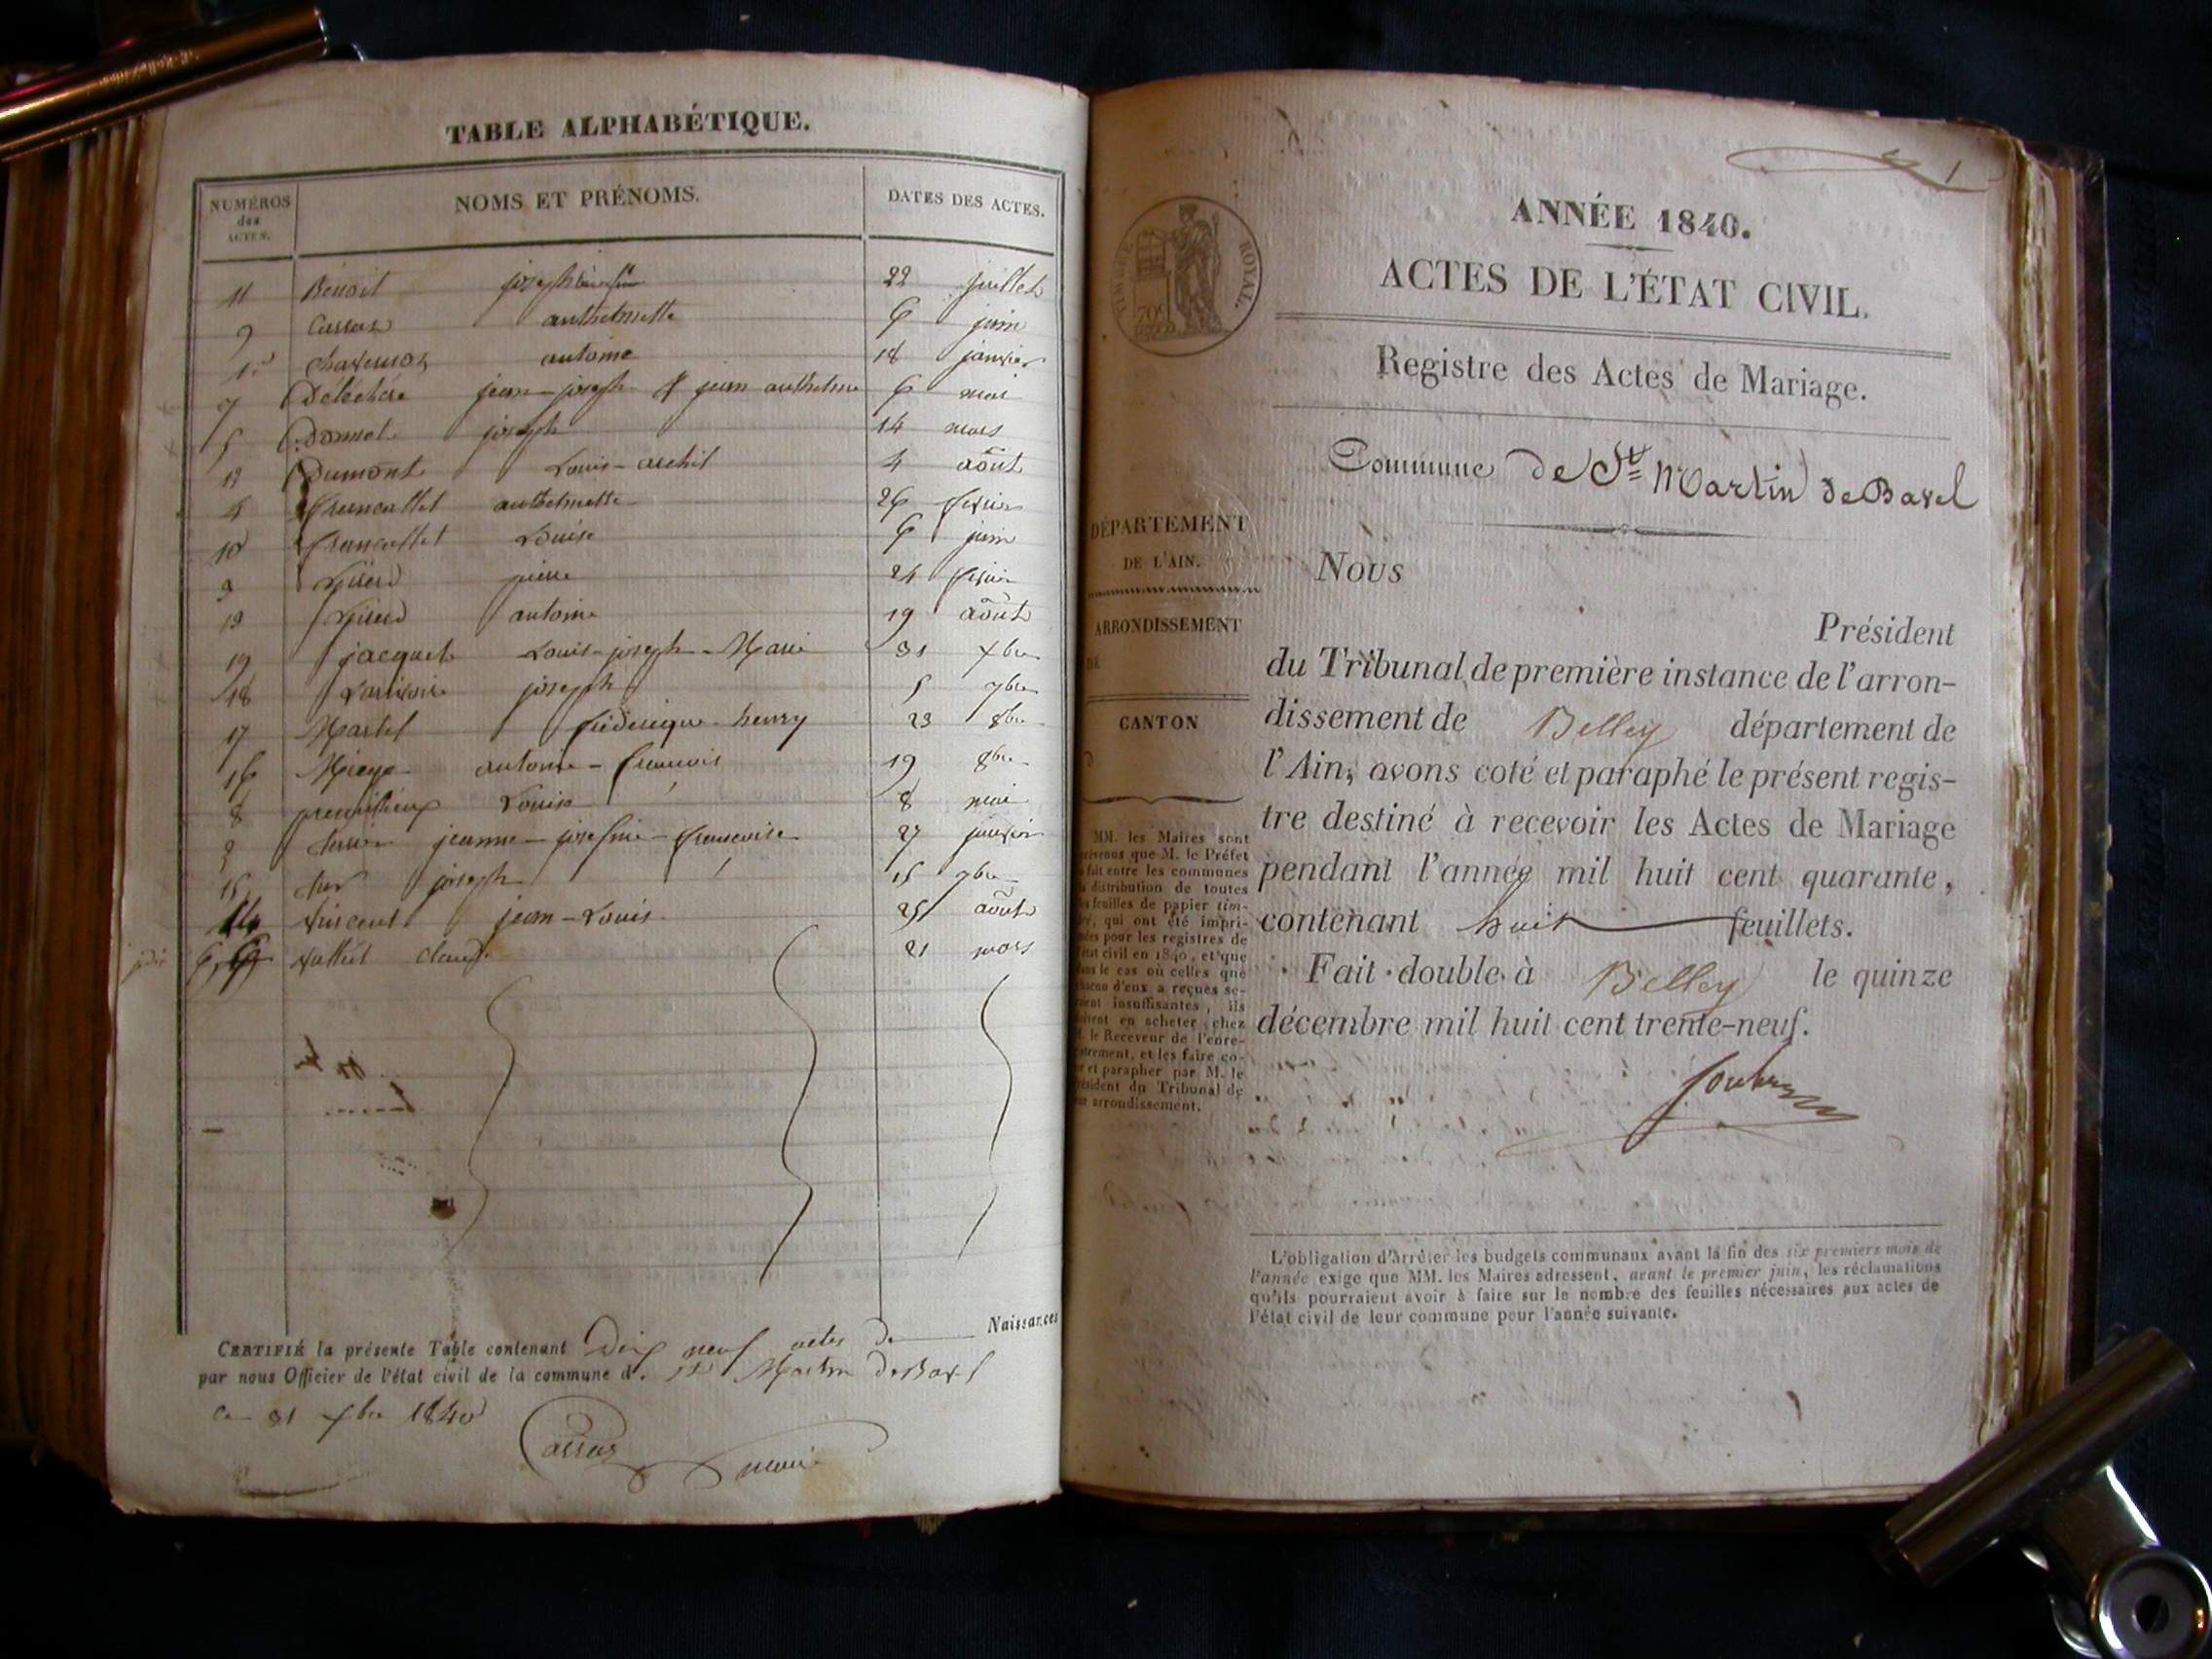 TABLE ALPHABÉTIQUE.
NUMÉROS des ACTES. NOMS ET PRÉNOMS. DATES DES ACTES.
11 Benoit 22 juillet
9 Cassaz anthelmette 6 juin
1er antoine 18 janvier
7 jean-joseph jean anthelme 6 mai
5 joseph 14 mars
12 Dumont Louis- 4 août
4 francallet anthelmette 26 février
10 francallet Louise 6 juin
3 pierre 24 février
13 antoine 19 août
19 jacquet Louis-joseph-Marie 31 xbre
18 joseph 5 9bre
17 Martel frédérique henry 23 8bre
16 antoine-francois 19 8bre
8 Louise 8 mai
2 jeanne-josefine-francoise 27 janvier
15 joseph 15 7bre
14 vincent jean-Louis 25 août
6 claude 21 mars
CERTIFIÉ la présente Table contenant Dix neuf actes de Naissances
par nous Officier de l'état civil de la commune d. St Martin de Bavel
ce 31 xbre 1840
Cassaz maire
1
TIMBRE ROYAL.
70c
ANNÉE 1840.
ACTES DE L'ÉTAT CIVIL.
Registre des Actes de Mariage.
Commune de St Martin de Bavel
DÉPARTEMENT
DE L'AIN.
ARRONDISSEMENT
DE
CANTON
MM. les Maires sont
prévenus que M. le Préfet
a fait entre les communes
la distribution de toutes
les feuilles de papier tim-
bré, qui ont été impri-
mées pour les registres de
l'état civil en 1840, et que
dans le cas où celles que
chacun d'eux a reçues se-
raient insuffisantes, ils
doivent en acheter chez
M. le Receveur de l'enre-
gistrement, et les faire co-
ter et parapher par M. le
Président du Tribunal de
leur arrondissement.
Nous
Président
du Tribunal de première instance de l'arron-
dissement de Belley département de
l'Ain, avons coté et paraphé le présent regis-
tre destiné à recevoir les Actes de Mariage
pendant l'année mil huit cent quarante,
contenant huit feuillets.
Fait double à Belley le quinze
décembre mil huit cent trente-neuf.
L'obligation d'arrêter les budgets communaux avant la fin des six premiers mois de
l'année exige que MM. les Maires adressent, avant le premier juin, les réclamations
qu'ils pourraient avoir à faire sur le nombre des feuilles nécessaires aux actes de
l'état civil de leur commune pour l'année suivante.